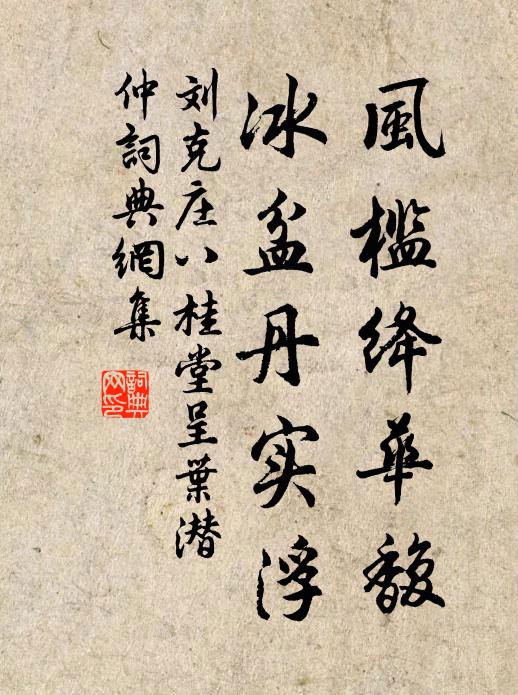 風檻绛華馥
冰盆丹实浮
刘克庄八桂堂呈葉潜
仲詞典網集
詞典
网印